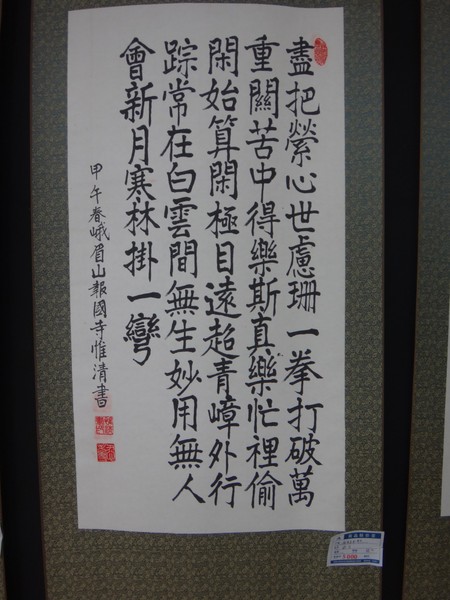 盡把縈心世慮珊一拳打破萬
重關苦中得樂斯真樂忙裡偷
閑始算閑極目遠超青嶂外行
踪常在白雲間無生妙用無人
會新月寒林掛一彎
甲午春峨眉山報國寺惟清書